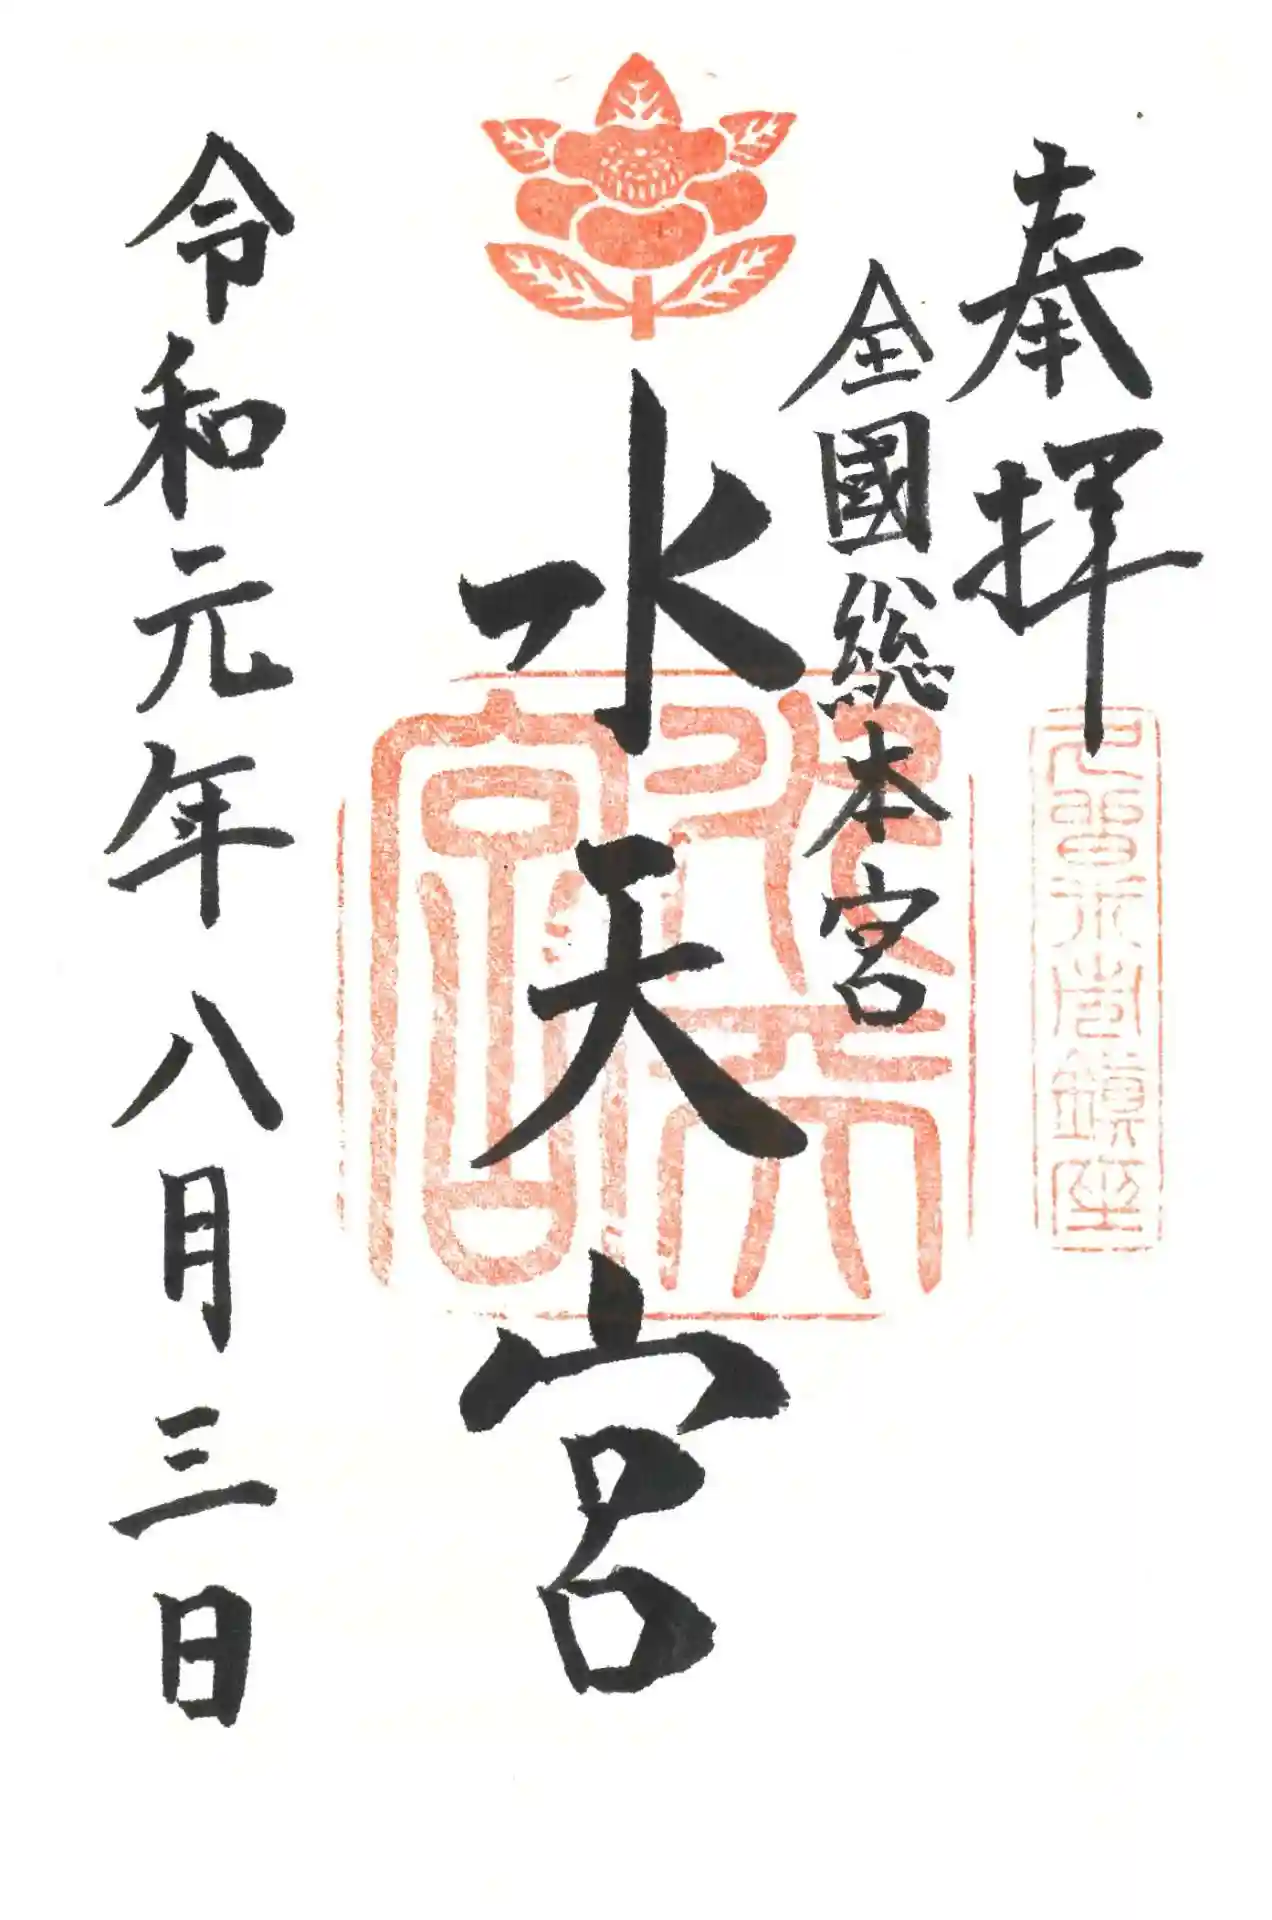 奉拝
全國総本宮
水天宮
水天宮
令和元年八月三日